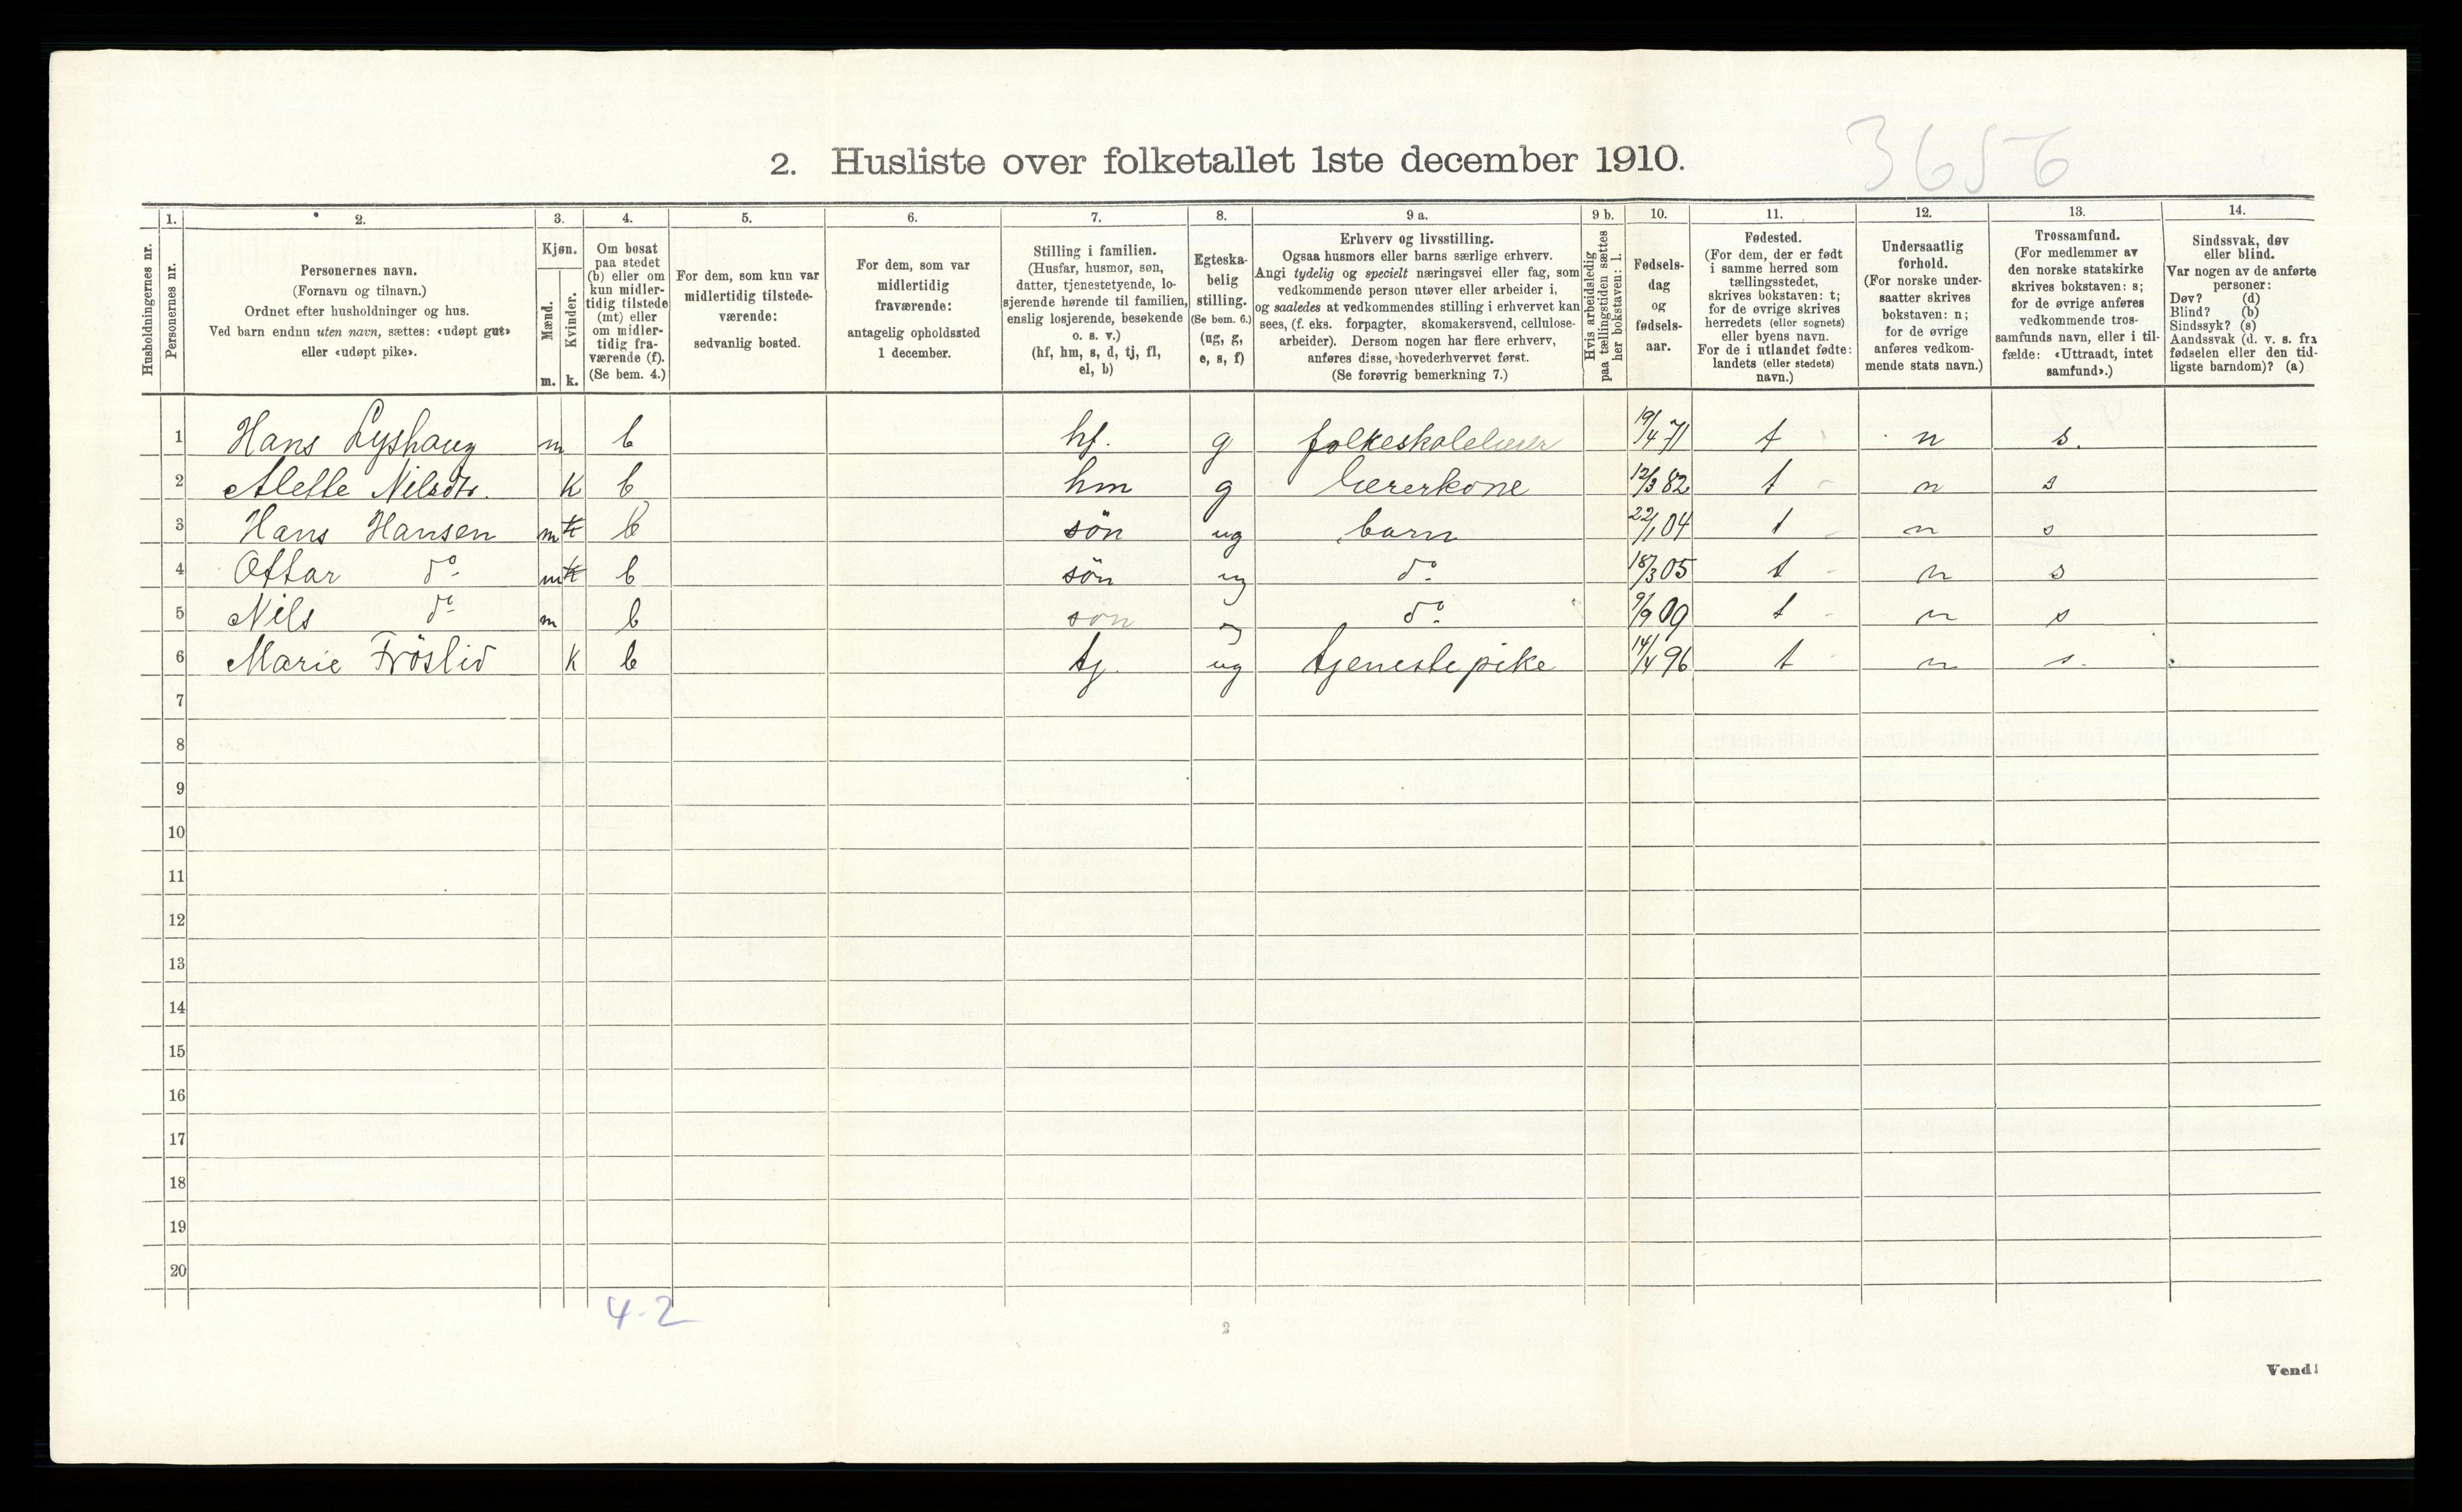 3656
2. Husliste over folketallet 1ste december 1910.
Husholdningernes nr.
1.
Personernes nr.
2.
Personernes navn.
(Fornavn og tilnavn.)
Ordnet efter husholdninger og hus.
Ved barn endnu uten navn, sættes: «udøpt gut»
eller «udøpt pike».
3.
Kjøn.
Mænd.
Kvinder.
m. k.
4.
Om bosat
paa stedet
(b) eller om
kun midler-
tidig tilstede
(mt) eller
om midler-
tidig fra-
værende (f).
(Se bem. 4.)
5.
For dem, som kun var
midlertidig tilstede-
værende:
sedvanlig bosted.
6.
For dem, som var
midlertidig
fraværende:
antagelig opholdssted
1 december.
7.
Stilling i familien.
(Husfar, husmor, søn,
datter, tjenestetyende, lo-
sjerende hørende til familien,
enslig losjerende, besøkende
o. s. v.)
(hf, hm, s, d, tj, fl,
el, b)
8.
Egteska-
belig
stilling.
(Se bem. 6.)
(ug, g,
e, s, f)
9 a.
Erhverv og livsstilling.
Ogsaa husmors eller barns særlige erhverv.
Angi tydelig og specielt næringsvei eller fag, som
vedkommende person utøver eller arbeider i,
og saaledes at vedkommendes stilling i erhvervet kan
sees, (f. eks. forpagter, skomakersvend, cellulose-
arbeider). Dersom nogen har flere erhverv,
anføres disse, hovederhvervet først.
(Se forøvrig bemerkning 7.)
9 b.
Hvis arbeidsledig
paa tællingstiden sættes
her bokstaven: l.
10.
Fødsels-
dag
og
fødsels-
aar.
11.
Fødested.
(For dem, der er født
i samme herred som
tællingsstedet,
skrives bokstaven: t;
for de øvrige skrives
herredets (eller sognets)
eller byens navn.
For de i utlandet fødte:
landets (eller stedets)
navn.)
12.
Undersaatlig
forhold.
(For norske under-
saatter skrives
bokstaven: n;
for de øvrige
anføres vedkom-
mende stats navn.)
13.
Trossamfund.
(For medlemmer av
den norske statskirke
skrives bokstaven: s;
for de øvrige anføres
vedkommende tros-
samfunds navn, eller i til-
fælde: «Uttraadt, intet
samfund».)
14.
Sindssvak, døv
eller blind.
Var nogen av de anførte
personer:
Døv? (d)
Blind? (b)
Sindssyk? (s)
Aandssvak (d. v. s. fra
fødselen eller den tid-
ligste barndom)? (a)
1 Hans Lyshaug m b hf. g folkeskolelærer 19/4 71 t n s.
2 Alette Nilsdtr. k b hm g lærerkone 12/3 82 t n s
3 Hans Hansen m k b sön ug barn 22/1 04 t n s
4 Ottar do m k b sön ug do 18/3 05 t n s
5 Nils do m b sön ug do 9/9 09 t n s
6 Marie Fröslid k b tj. ug tjenestepike 14/4 96 t n s.
7
8
9
10
11
12
13
14
15
16
17
18
19
20
4-2
2
Vend!